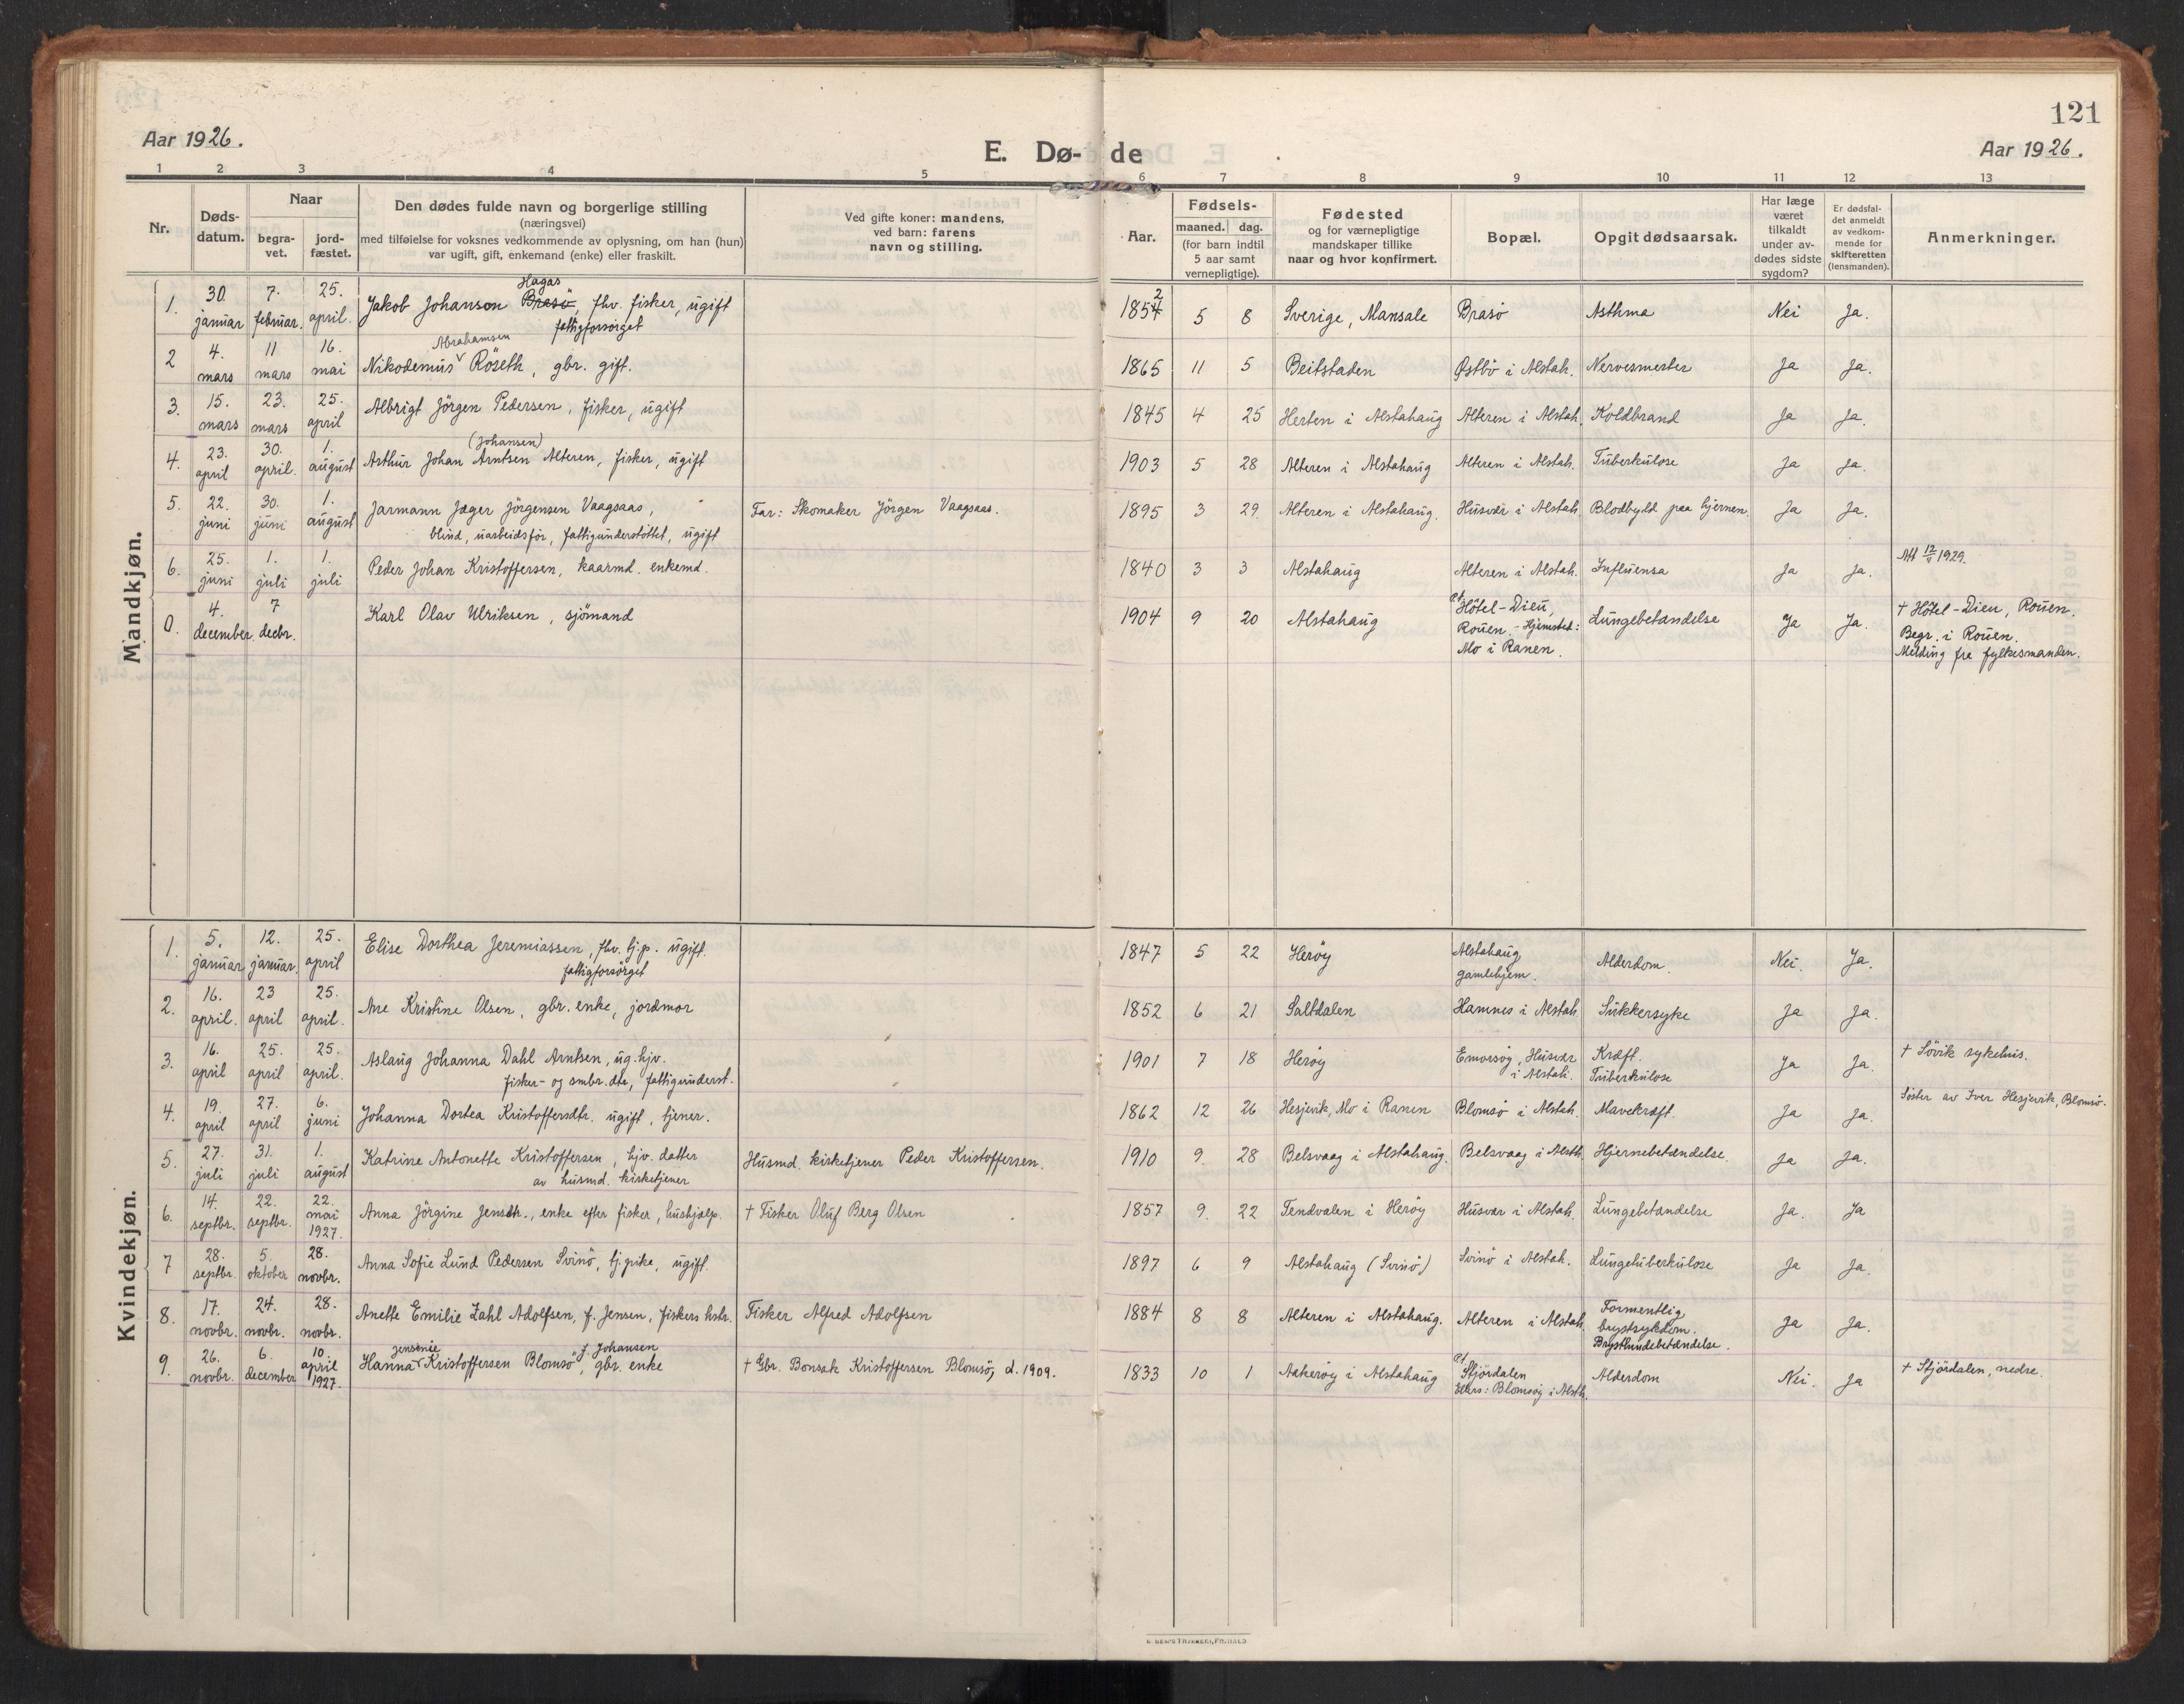 121
Aar 1926.
E. Dø- de
Aar 1926.
1 2 3 4 5 6 7 8 9 10 11 12 13
Nr.
Døds-
datum.
Naar
begra-
vet.
jord-
fæstet.
Den dødes fulde navn og borgerlige stilling
(næringsvei)
med tilføielse for voksnes vedkommende av oplysning, om han (hun)
var ugift, gift, enkemand (enke) eller fraskilt.
Ved gifte koner: mandens,
ved barn: farens
navn og stilling.
Aar.
Fødsels-
maaned. dag.
(for barn indtil
5 aar samt
vernepligtige).
Fødested
og for værnepligtige
mandskaper tillike
naar og hvor konfirmert.
Bopæl.
Opgit dødsaarsak.
Har læge
været
tilkaldt
under av-
dødes sidste
sygdom?
Er dødsfal-
det anmeldt
av vedkom-
mende for
skifteretten
(lensmanden).
Anmerkninger.
Mandkjøn.
1. 30. januar 7. februar. 25. april. Jakob Johanson Brasö Hagas, fhv. fisker, ugift
fattigforsørget
1854 2 5 8 Sverige, Mansale Brasö Asthma Nei Ja.
2 4. mars 11 mars 16. mai Nikodemus Abrahamsen Röseth, gbr. gift. 1865 11 5 Beitstaden Østbö i Alstah. Ja Ja.
3. 15. mars 23. mars 25. april Albrigt Jörgen Pedersen, fisker, ugift 1845 4 25 Herten i Alstahaug Alteren i Alstah. Koldbrand Ja Ja.
4. 23. april 30. april. 1. august Arthur Johan (Johansen) Arntsen Alteren, fisker, ugift 1903 5 28 Alteren i Alstahaug Alteren i Alstah. Tuberkulose Ja Ja.
5. 22. juni 30. juni 1. august Jarmann Jæger Jörgensen Vaagsaas,
blind, uarbeidsför, fattigunderstöttet, ugift
Far: Skomaker Jörgen Vaagsaas. 1895 3 29 Alteren i Alstahaug. Husvær i Alstah. Blodbyld paa hjernen. Ja Ja.
6. 25. juni 1. juli 1. juli Peder Johan Kristoffersen, kaarmd. enkemd. 1840 3 3 Alstahaug Alteren i Alstah. Influensa Ja Ja. Att 12/11 1929.
0. 4. december. 7 decbr. Karl Olav Ulriksen, sjömand 1904 9 20 Alstahaug p.t. Hôtel-Dieu,
Rouen. - Hjemsted:
Mo i Ranen.
Lungebetændelse Ja Ja. † Hôtel-Dieu, Rouen.
Begr. i Rouen.
Melding fra fylkesmanden.
Kvindekjøn.
1. 5. januar 12. januar. 25. april Elise Dorthea Jeremiassen, fhv. tj.p. ugift.
fattigforsörget
1847 5 22 Heröy Alstahaug
gamlehjem.
Alderdom. Nei. Ja.
2. 16. april. 23 april 25. april. Ane Kristine Olsen, gbr. enke, jordmor 1852 6 21 Saltdalen Hamnes i Alstah Sukkersyke Ja Ja.
3. 16. april 25. april 25. april. Aslaug Johanna Dahl Arntsen, ug. hjv.
fisker- og smbr. dtr, fattigunderst.
1901 7 18 Heröy Husvær
i Alstah.
Kræft.
Tuberkulose
Ja Ja. † Sövik sykehus.
4. 19. april 27. april 6. juni Johanna Dortea Kristoffersdtr. ugift, tjener. 1862 12 26 Hesjevik, Mo i Ranen Blomsö i Alstah. Mavekræft. Ja Ja. Söster av Iver Hesjevik, Blomsö.
5. 27. juli 31. juli 1. august Katrine Antonette Kristoffersen, hjv. datter
av husmd. kirketjener
Husmd. kirketjener Peder Kristoffersen. 1910 9. 28 Belsvaag i Alstahaug. Belsvaag i Alsth. Hjernebetændelse. Ja Ja.
6. 14. septbr. 22. septbr. 22. mai 1927. Anna Jörgine Jensdtr., enke efter fisker, hushjælp. † Fisker Oluf Berg Olsen 1857 9. 22 Tendvalen i Heröy Husvær i Alstah. Lungebetændelse Ja. Ja
7 28. septbr. 5. oktober 28. novbr. Anna Sofie Lund Pedersen Svinö, tj.pike, ugift. 1897 6 9 Alstahaug (Svinö) Svinö i Alstah. Lungetuberkulose Ja Ja.
8. 17. novbr. 24. novbr. 28. novbr. Anette Emilie Zahl Adolfsen, f. Jensen, fiskers hstr. Fisker Alfred Adolfsen 1884 8 8 Alteren i Alstahaug. Alteren i Alstah. Formentlig
brystsykdom.
Brysthindebetændelse.
Ja Ja.
9. 26. novbr. 6. december 10. april 1927. Hanna Jensenie Kristoffersen Blomsö f. Johansen, gbr. enke † Gbr. Bonsak Kristoffersen Blomsö, d. 1909. 1833 10 1 Aakeröy i Alstahaug p.t. Stjördalen
Ellers: Blomsöy i Alsth.
Alderdom Nei. Ja † Stjördalen, nedre.